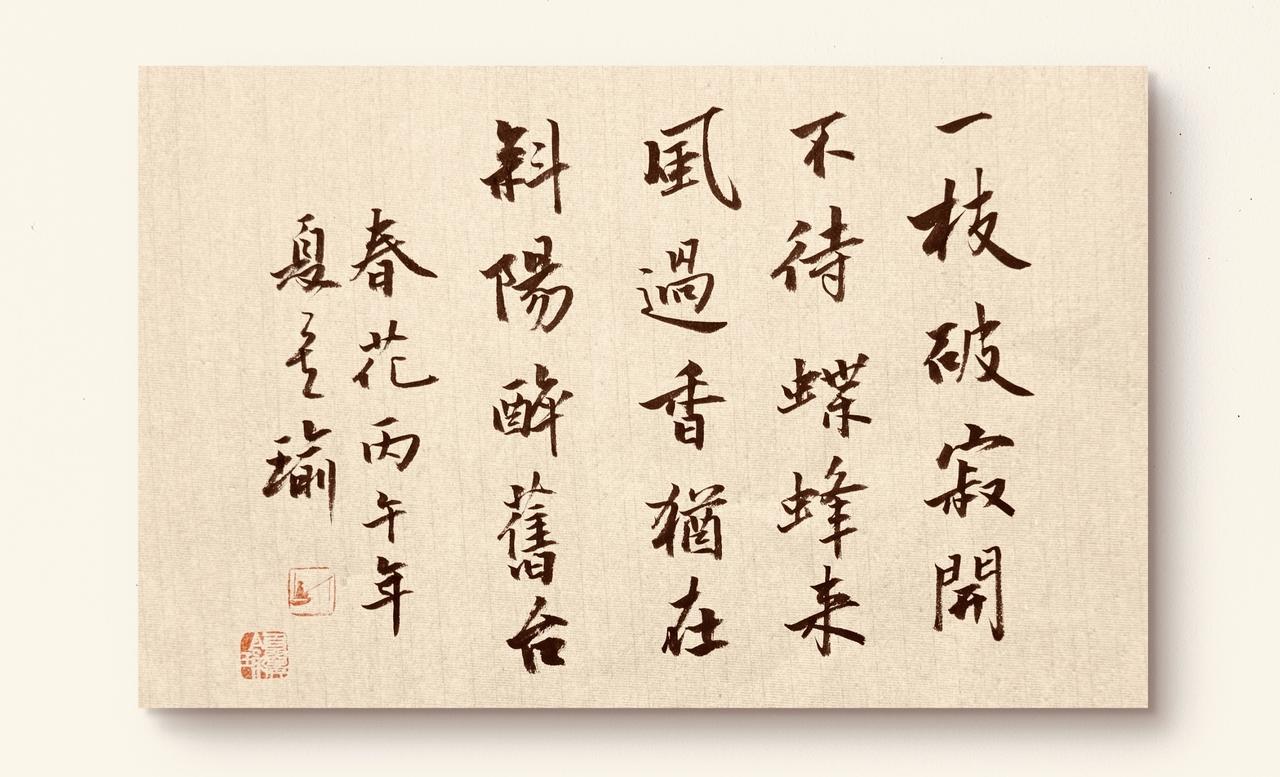 一枝破寂開
不待蝶蜂来
風過香猶在
斜陽醉舊台
春花丙午年
夏瑜